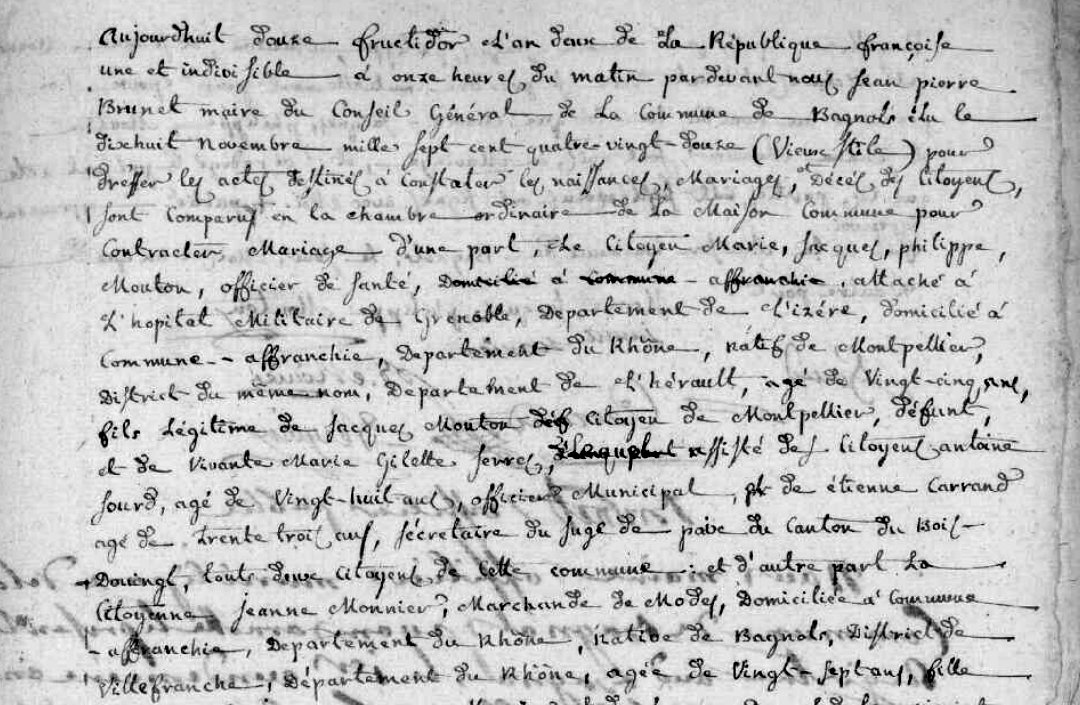 Aujourdhuit douze fructidor et l'an deux de La République françoise
une et indivisible à onze heures du matin pardevant nous jean pierre
Brunet maire du Conseil Général de La Commune de Bagnols élu le
dixhuit Novembre mille sept cent quatre-vingt-douze (Vieux stile) pour
dresser les actes destinés à Constater les naissances, Mariages, et Décès des Citoyens,
sont Comparus en la chambre ordinaire de La Maison Commune pour
Contracter Mariage d'une part, Le Citoyen Marie, Jacques, philippe,
Mouton, officier de santé, Domicilié à Commune - affranchie, attaché à
L'hopital Militaire de Grenoble, Département de L'izére, domicilié à
Commune - - affranchie, Departement du Rhône, natif de Montpellier,
District du même nom, Departement de L'hérault, agé de Vingt-cinq ans,
fils Légitime de Jacques Mouton Citoyen de Montpellier, défunt,
et de Vivante Marie Gilette Serres, assisté des Citoyens antoine
sourd, agé de Vingt-huit ans, officier Municipal, de étienne Carrand
agé de Trente trois ans, sécretaire du Juge de paix du Canton du Bois-
Douingt, touts deux Citoyens de cette commune ; et d'autre part La
Citoyenne jeanne Monnier, Marchande de Modes, Domiciliée à Commune
- affranchie, Departement du Rhône, Native de Bagnols, District de
Villefranche, Département du Rhône, agée de Vingt-sept ans, fille